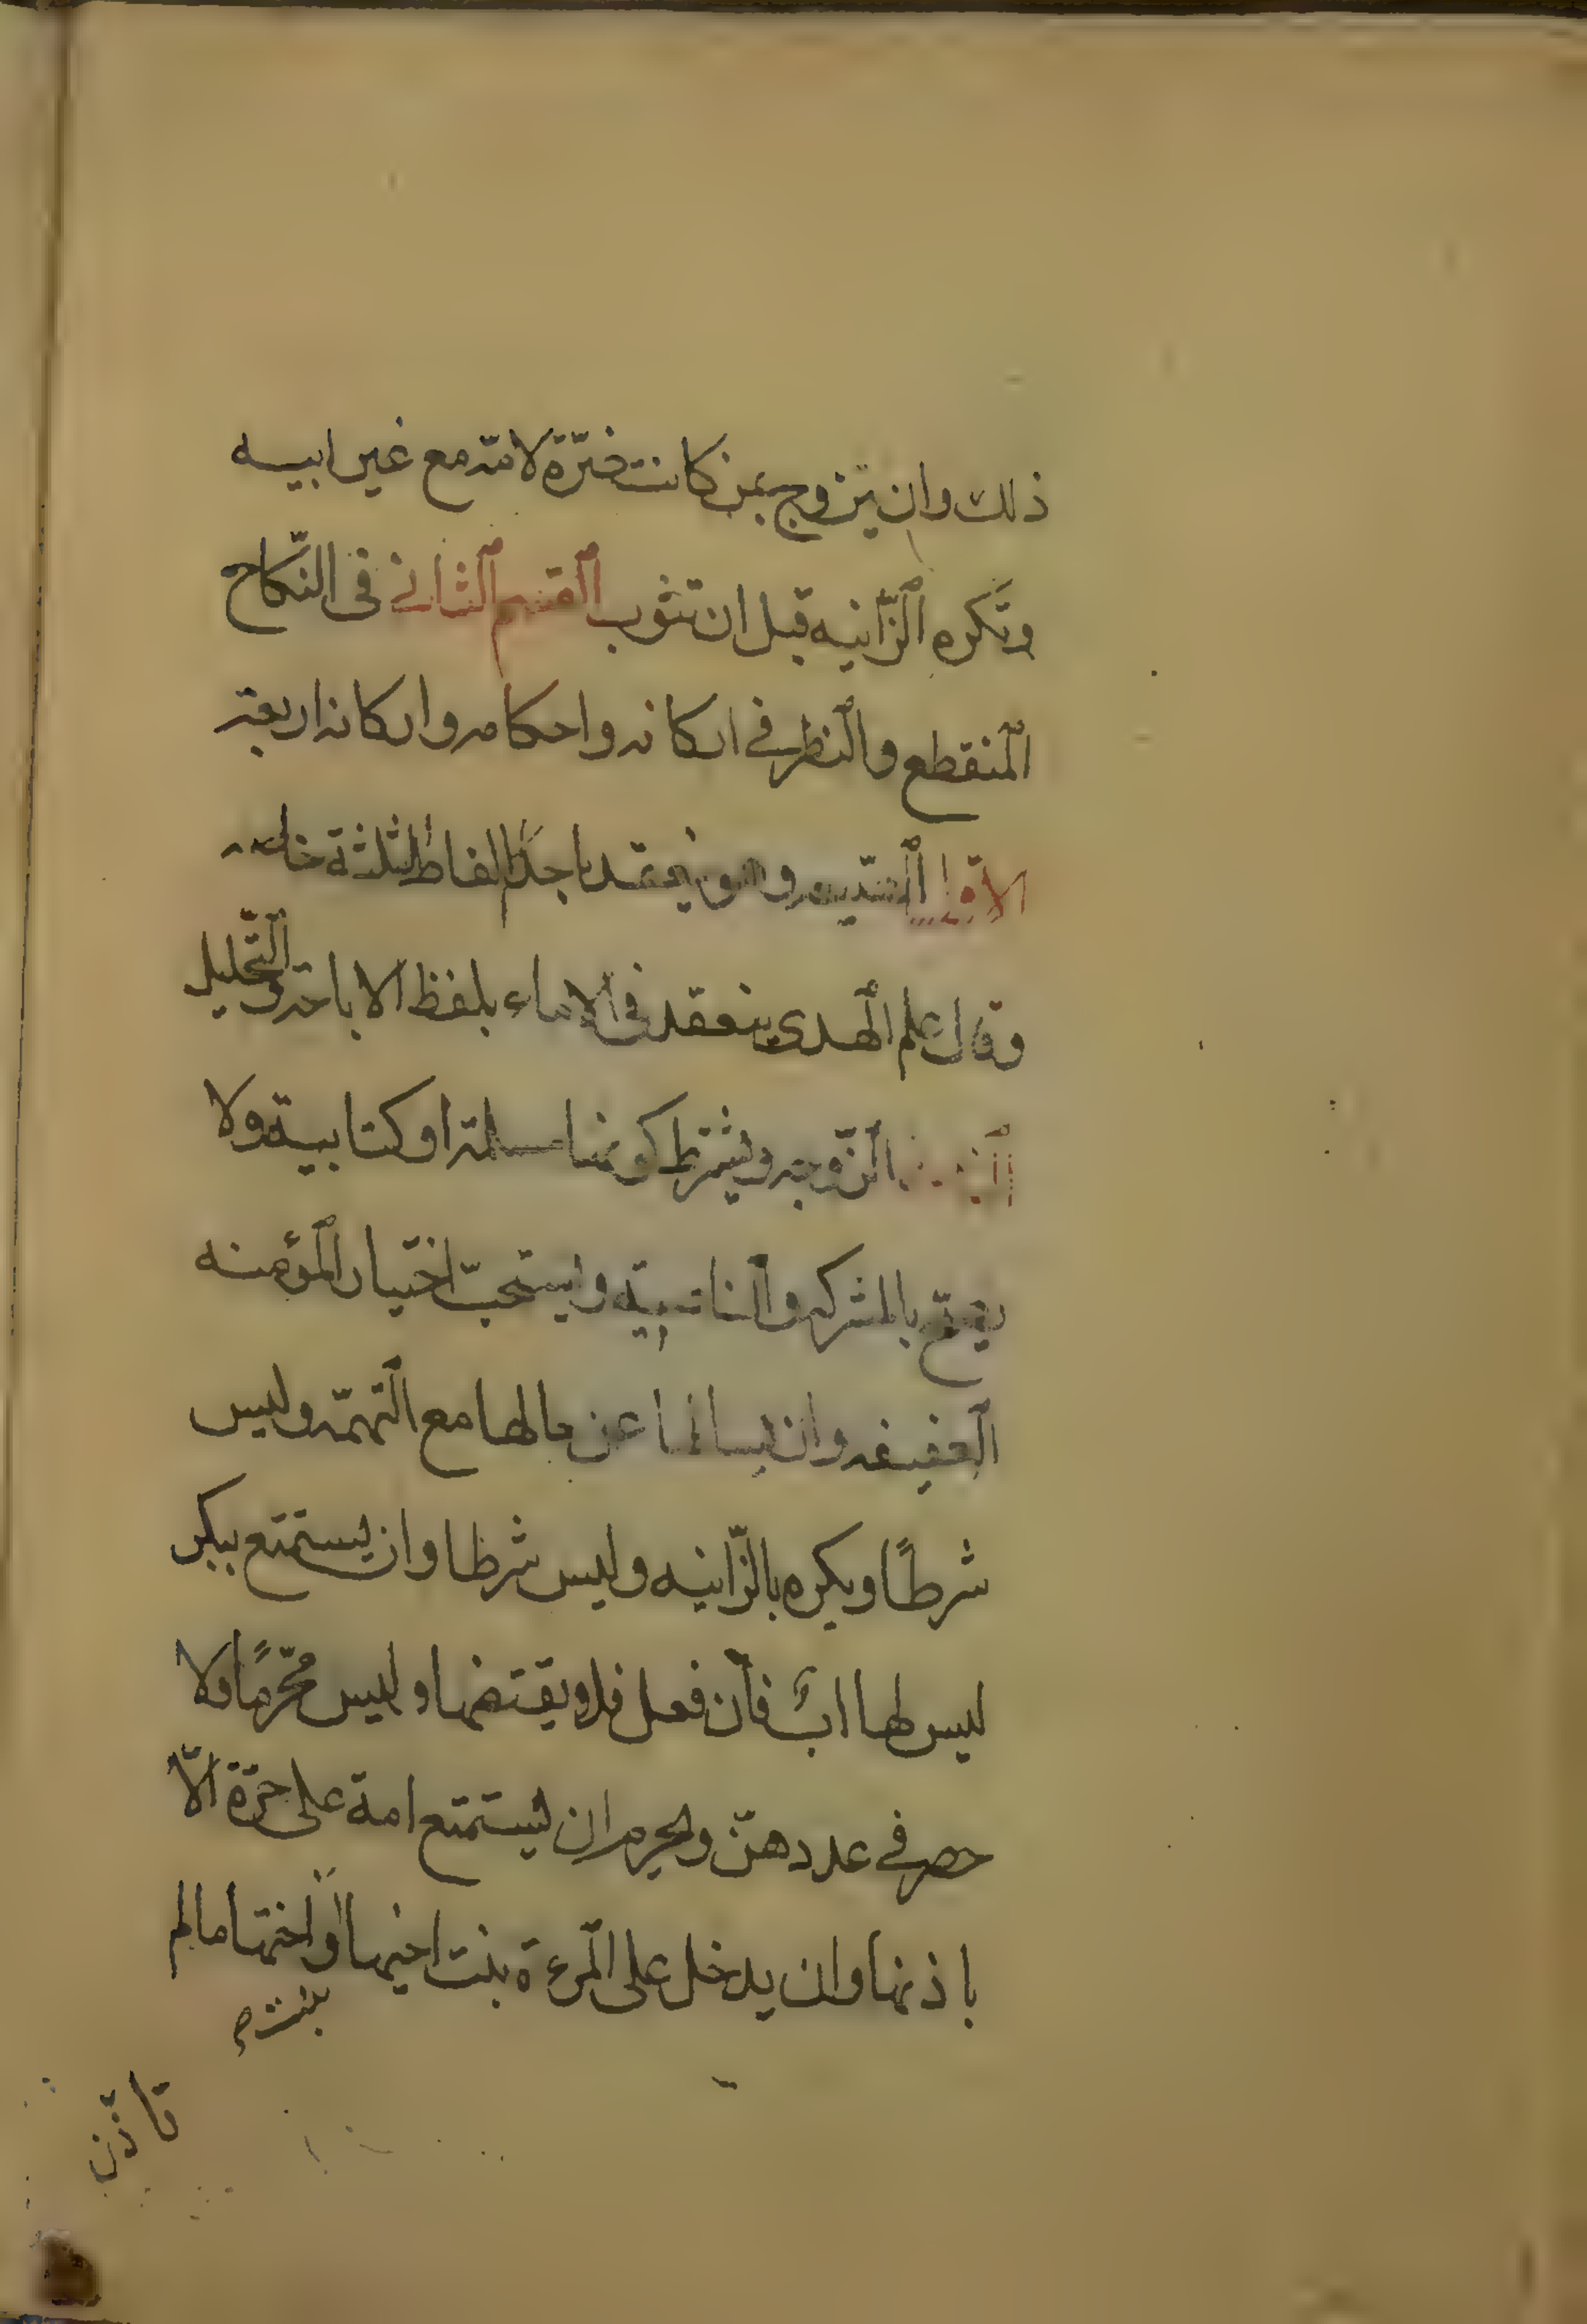 ذلك وان يتزوج بمن كانت ضرّة لامّه مع غير ابيه
وتكره الزّانيه قبل ان تتوب القسم الثاني فى النّكاح
المنقطع والنظر في اركانه واحكامه واركانه اربعة
الاوّل الصّيغه وهو ينعقد باحد الفاظ الثلثة خاصّه
وقال علم الهدى ينعقد فى الاماء بلفظ الاباحة والتّحليل
الزّوجه ويشترط كونها مسلمة او كتابية ولا
يصحّ بالمشركه والناصبية ويستحبّ اختيار المؤمنه
العفيفه وان يسالها عن حالها مع التّهمّه وليس
شرطًا ويكره بالزّانيه وليس شرطا وان يستمتع ببكر
ليس لها ابٌ فان فعل فلا يقتضها وليس محّرمًا ولا
حصر في عددهنّ ويحرم ان يستمتع امة على حرّة الّا
باذنها وان يدخل على المرءة بنت اخيها او اختها مالم
بنت
تأذن